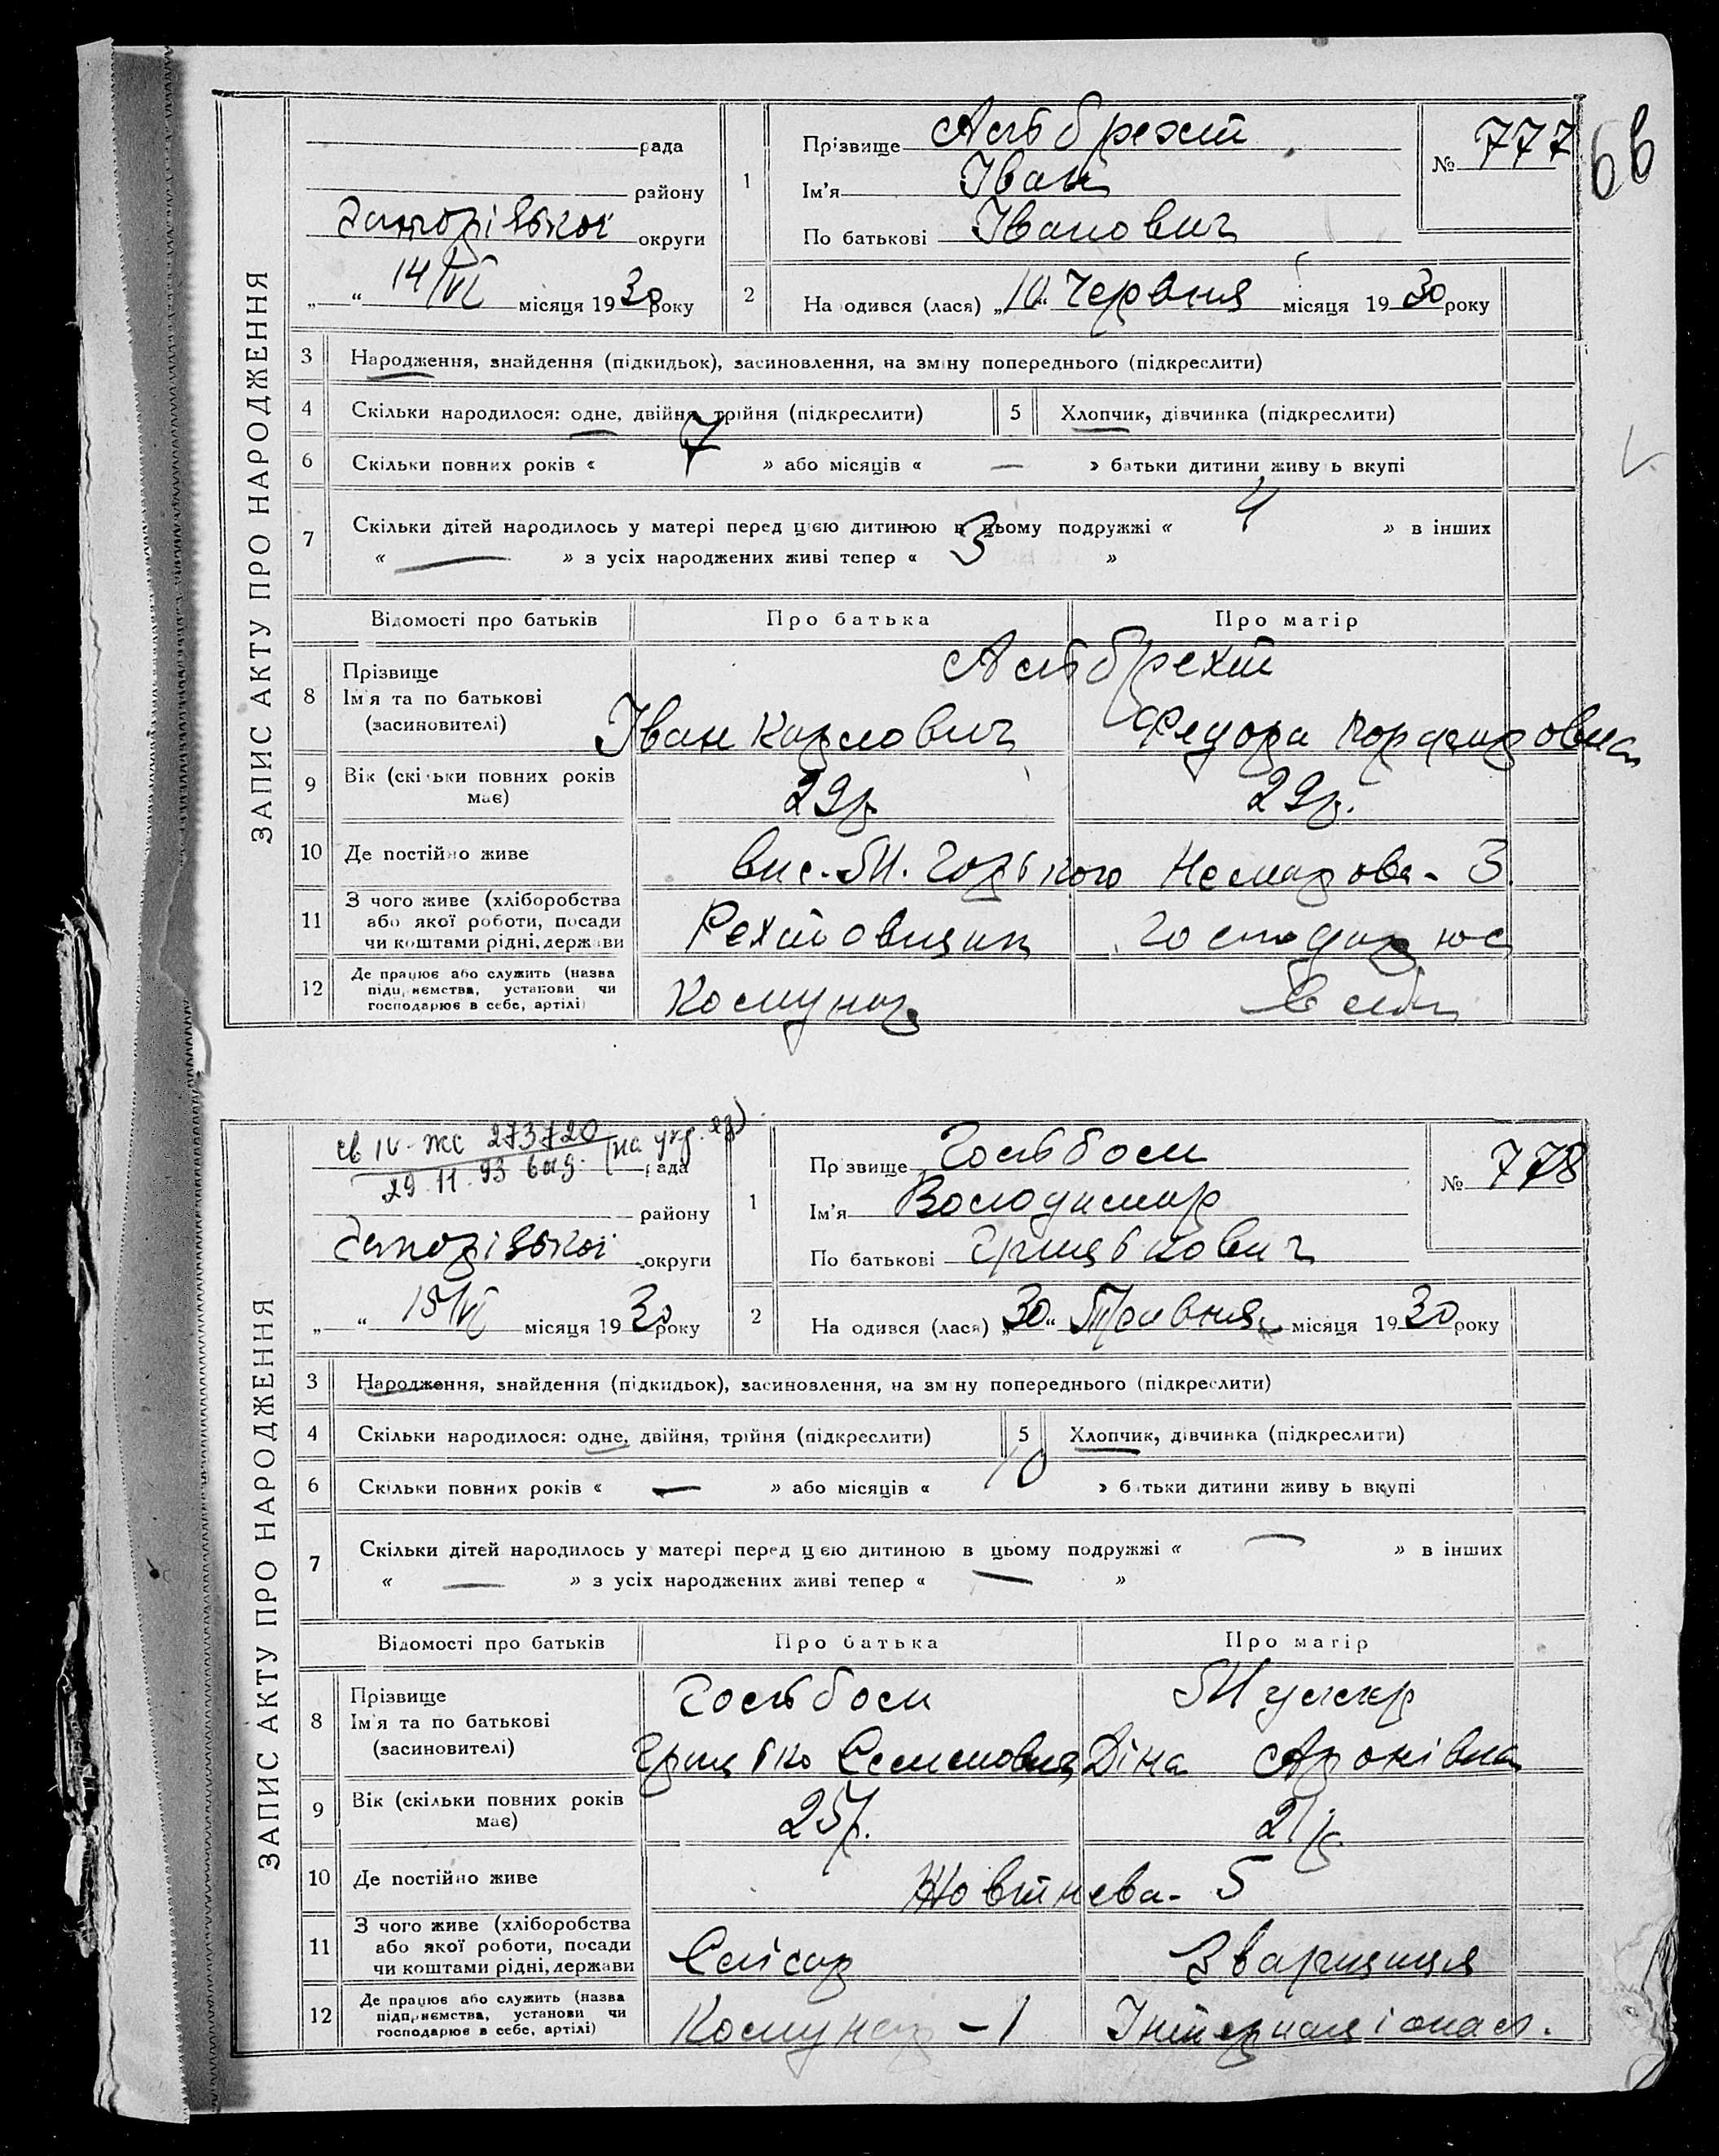 66
ЗАПИС АКТУ ПРО НАРОДЖЕННЯ
рада
району
Запорізької округи
„ “ 14/VI місяця 1930 року
1 Прізвище Альбрехт
Ім'я Іван
По батькові Іванович
№ 777
2 На одився (лася) „10“ Червня місяця 1930 року
3 Народження, знайдення (підкидьок), засиновлення, на зміну попереднього (підкреслити)
4 Скільки народилося: одне, двійня, трійня (підкреслити) 5 Хлопчик, дівчинка (підкреслити)
6 Скільки повних років « 7 » або місяців « — » батьки дитини живу ь вкупі
7 Скільки дітей народилось у матері перед цією дитиною в цьому подружжі « 4 » в інших
« — » з усіх народжених живі тепер « 3 »
Відомості про батьків Про батька Про матір
8 Прізвище Ім'я та по батькові (засиновителі) Альбрехт
Іван Карлович Федора
9 Вік (скільки повних років має) 29р. 29р.
10 Де постійно живе вис. М. Горького 3.
11 З чого живе (хліборобства або якої роботи, посади чи коштами рідні, держави
12 Де працює або служить (назва підприємства, установи чи господарює в себе, артілі) Комунар в себе
ЗАПИС АКТУ ПРО НАРОДЖЕННЯ
св IV-жс 273720 (на укр. яз)
29.11.93 выд. рада
району
Запорізької округи
„ “ 15/VI місяця 1930 року
1 Пр звище Гольбом
Ім'я Володимир
По батькові Грицькович
№ 778
2 На одився (лася) „30“ Травня місяця 1930 року
3 Народження, знайдення (підкидьок), засиновлення, на зм ну попереднього (підкреслити)
4 Скільки народилося: одне, двійня, трійня (підкреслити) 5 Хлопчик, дівчинка (підкреслити)
6 Скільки повних років « — » або місяців « 10 » батьки дитини живу ь вкупі
7 Скільки дітей народилось у матері перед цією дитиною в цьому подружжі « — » в інших
« — » з усіх народжених живі тепер « — »
Відомості про батьків Про батька Про матір
8 Прізвище Ім'я та по батькові (засиновителі) Гольбом
Грицько Семенович Діна Аронівна
9 Вік (скільки повних років має) 25р. 21р.
10 Де постійно живе Жовтнева - 5
11 З чого живе (хліборобства або якої роботи, посади чи коштами рідні, держави Слісар Зварщиця
12 Де працює або служить (назва підприємства, установи чи господарює в себе, артілі) Комунар - 1 Інтернаціонал.